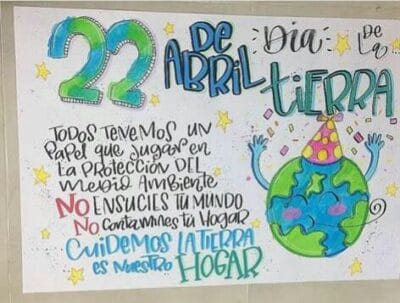 22 DE ABRIL
DIA DE LA...
TIERRA
TODOS TENEMOS UN
Papel que jugar en
La PROTECCIÓN DEL
Medio Ambiente
NO ENSUCIES TU MUNDO
No Contamines tu Hogar
CUIDEMOS LA TIERRA
es Nuestro HOGAR